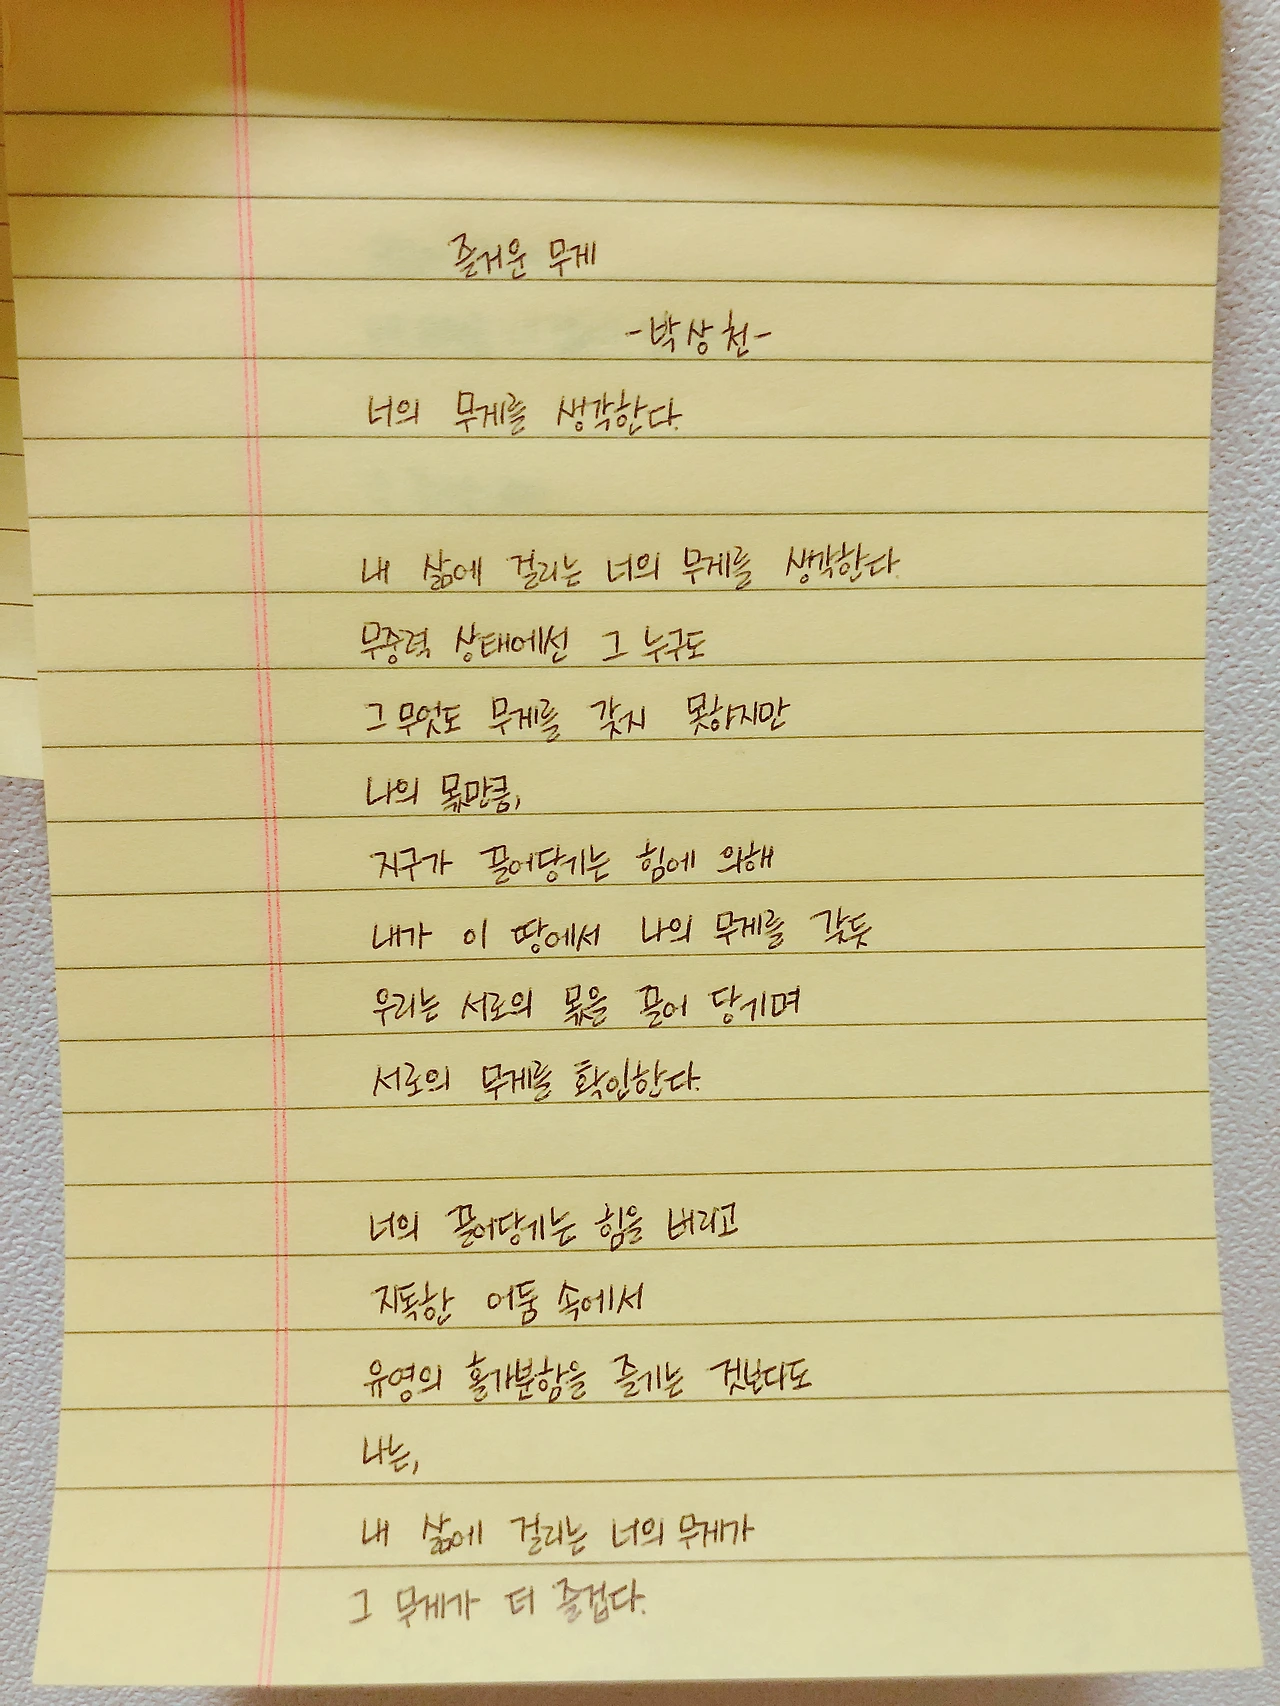 즐거운 무게
-박상천-
너의 무게를 생각한다.
내 삶에 걸리는 너의 무게를 생각한다.
무중력 상태에선 그 누구도
그 무엇도 무게를 갖지 못하지만
나의 몫만큼,
지구가 끌어당기는 힘에 의해
내가 이 땅에서 나의 무게를 갖듯
우리는 서로의 몫을 끌어 당기며
서로의 무게를 확인한다.
너의 끌어당기는 힘을 버리고
지독한 어둠 속에서
유영의 홀가분함을 즐기는 것보다도
나는,
내 삶에 걸리는 너의 무게가
그 무게가 더 즐겁다.